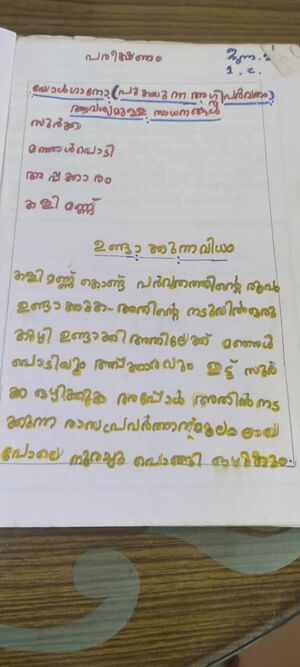 പരീക്ഷണം
1. C
വോൾഗാനോ (പുകയുന്ന അഗ്നിപർവതം)
ആവശ്യമുള്ള സാധനങ്ങൾ
സുർക്ക
മഞ്ഞൾപൊടി
അപ്പക്കാരം
കളിമണ്ണ്
ഉണ്ടാക്കുന്നവിധം
കളിമണ്ണ് കൊണ്ട് പർവതത്തിന്റെ രൂപം
ഉണ്ടാക്കുക- അതിന്റെ നടുവിൽ ഒരു
കുഴി ഉണ്ടാക്കി അതിലേക്ക് മഞ്ഞൾ
പൊടിയും അപ്പക്കാരവും ഇട്ട് സുർ
ക്ക ഒഴിക്കുക അപ്പോൾ അതിൽ നട
ക്കുന്ന രാസപ്രവർത്തനംമൂലം ലാവ
പോലെ നുരയും പൊങ്ങി ഒഴുകും.